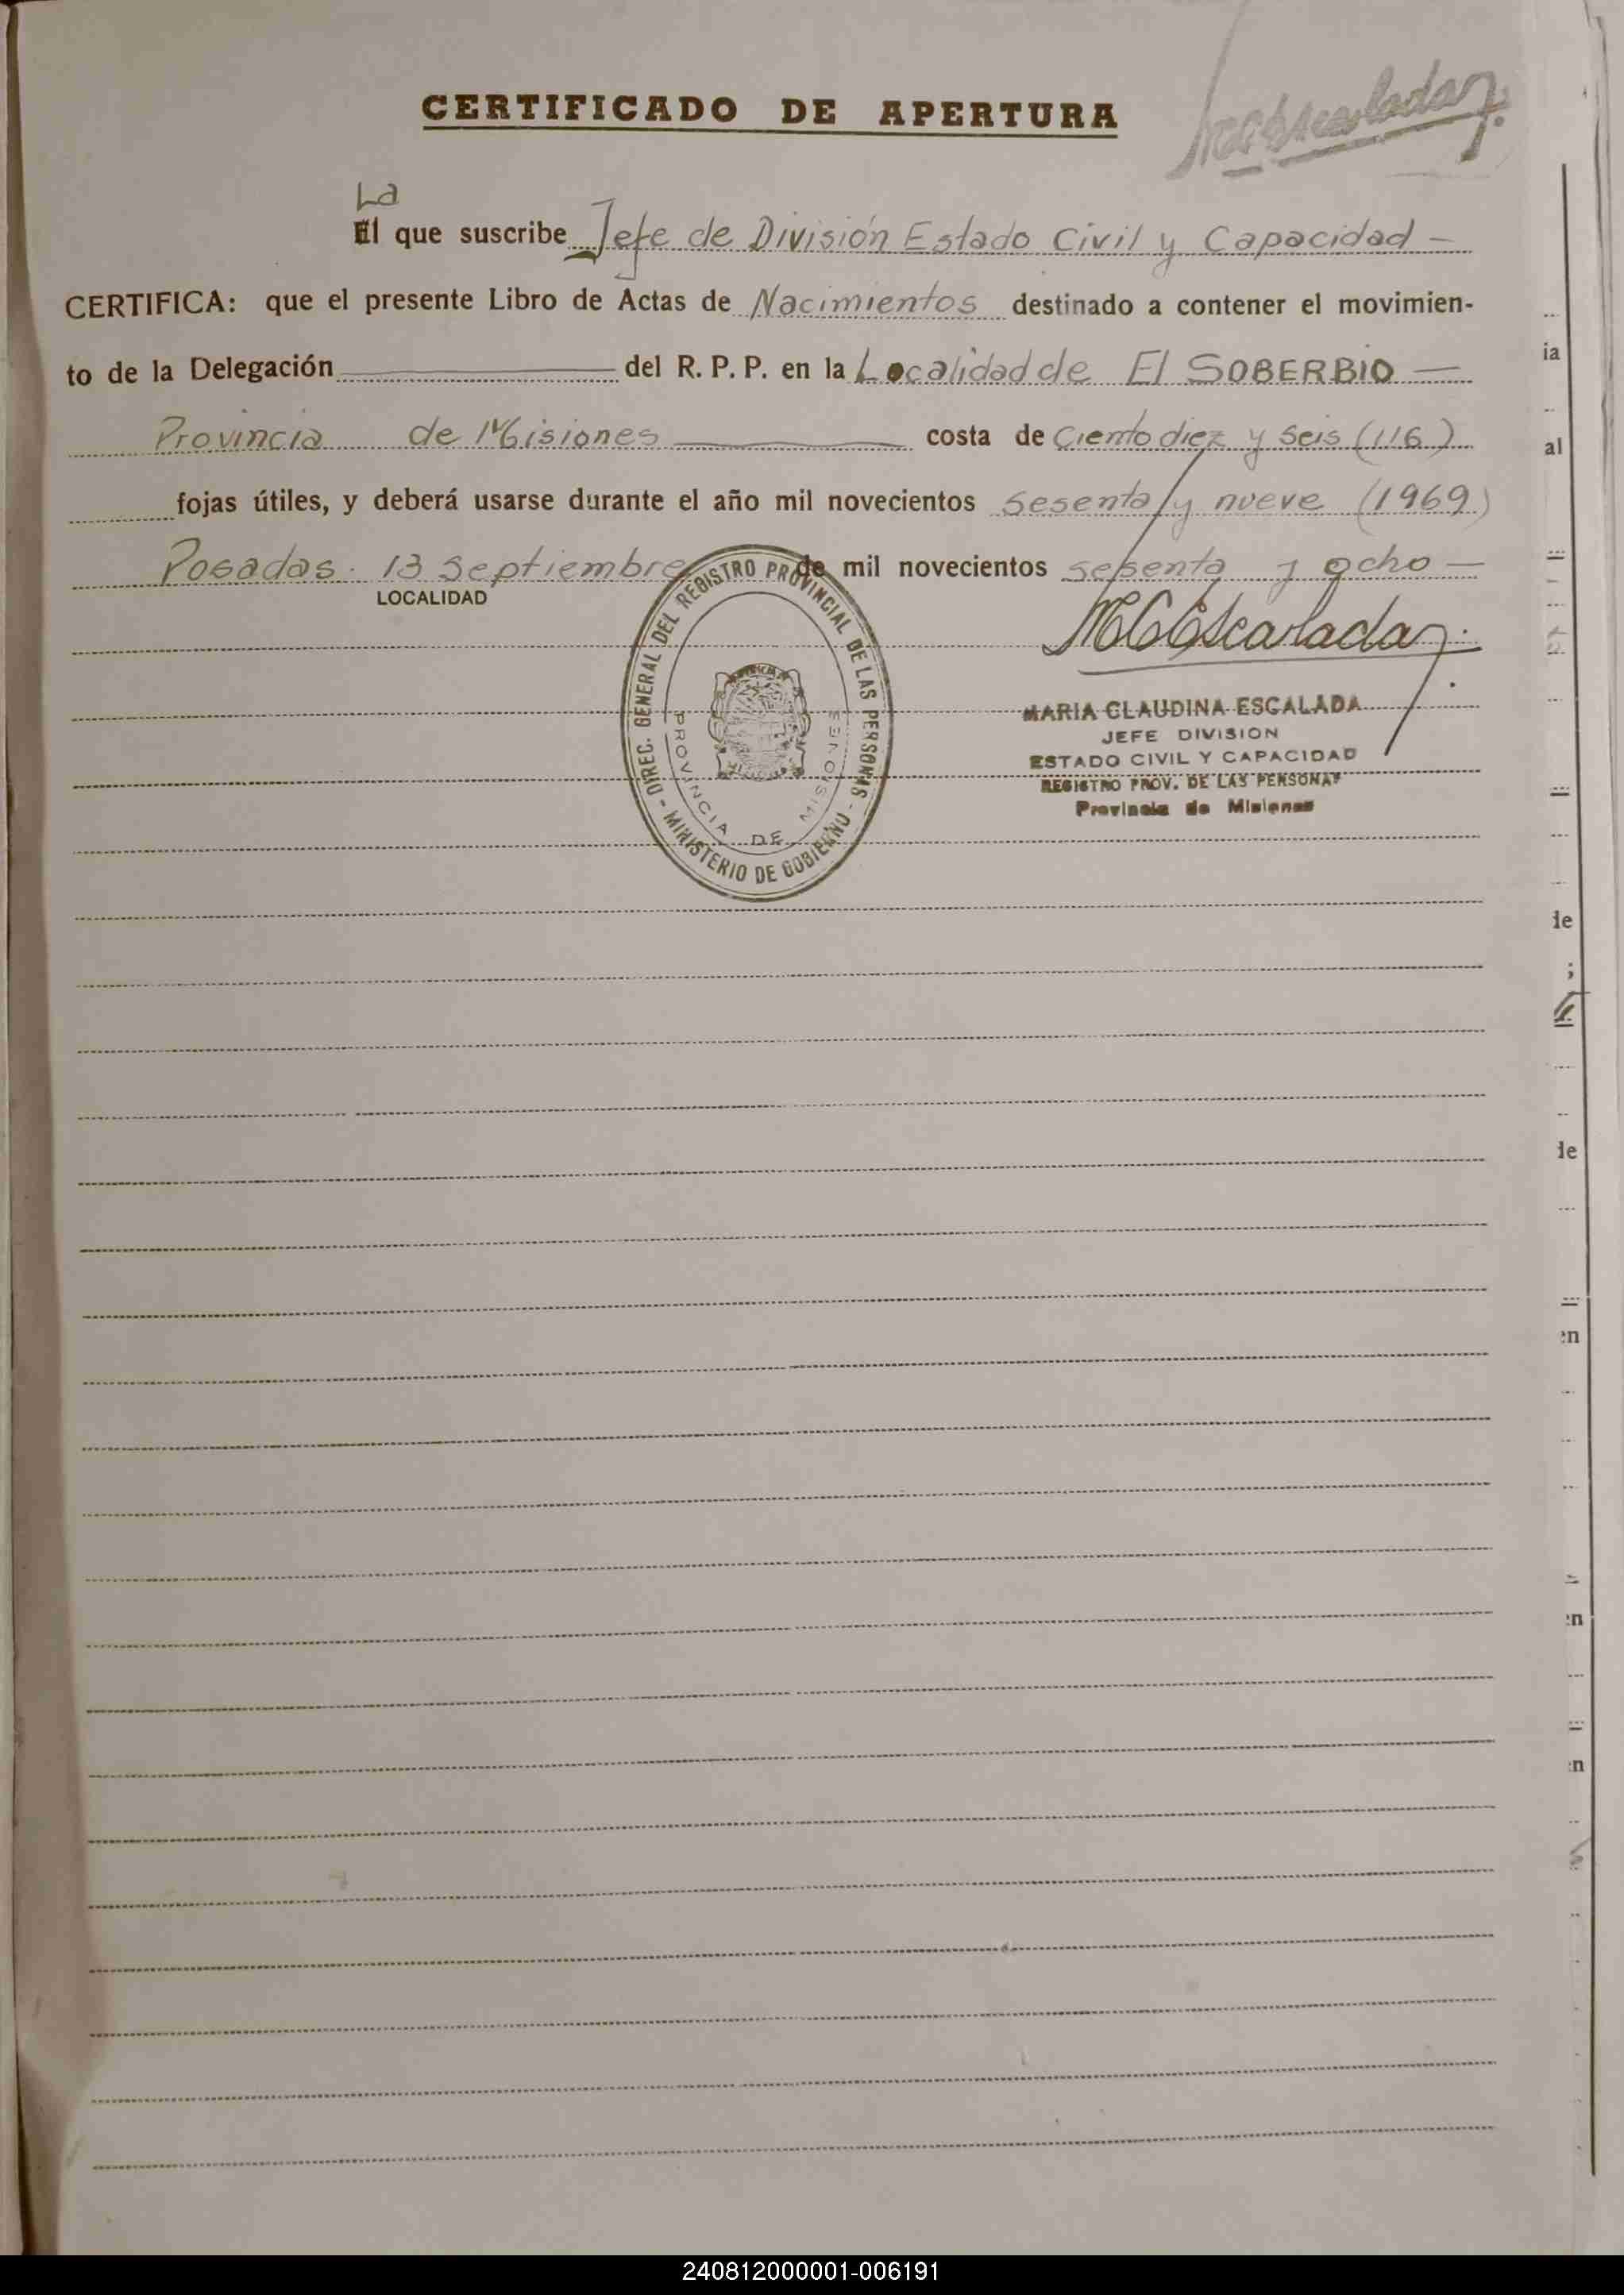 CERTIFICADO DE APERTURA
La
El que suscribe Jefe de División Estado Civil y Capacidad -
CERTIFICA: que el presente Libro de Actas de Nacimientos destinado a contener el movimien-
to de la Delegación del R. P. P. en la Localidad de El SOBERBIO -
Provincia de Misiones costa de Ciento diez y seis (116)
fojas útiles, y deberá usarse durante el año mil novecientos sesenta y nueve (1969)
Posadas. 13 Septiembre de mil novecientos sesenta y ocho -
LOCALIDAD
DIREC. GENERAL DEL REGISTRO PROVINCIAL DE LAS PERSONAS - MINISTERIO DE GOBIERNO -
PROVINCIA DE MISIONES
MCEscalada
MARIA CLAUDINA ESCALADA
JEFE DIVISION
ESTADO CIVIL Y CAPACIDAD
REGISTRO PROV. DE LAS PERSONAS
Provincia de Misiones
ia
al
de
;
de
en
en
en
240812000001-006191